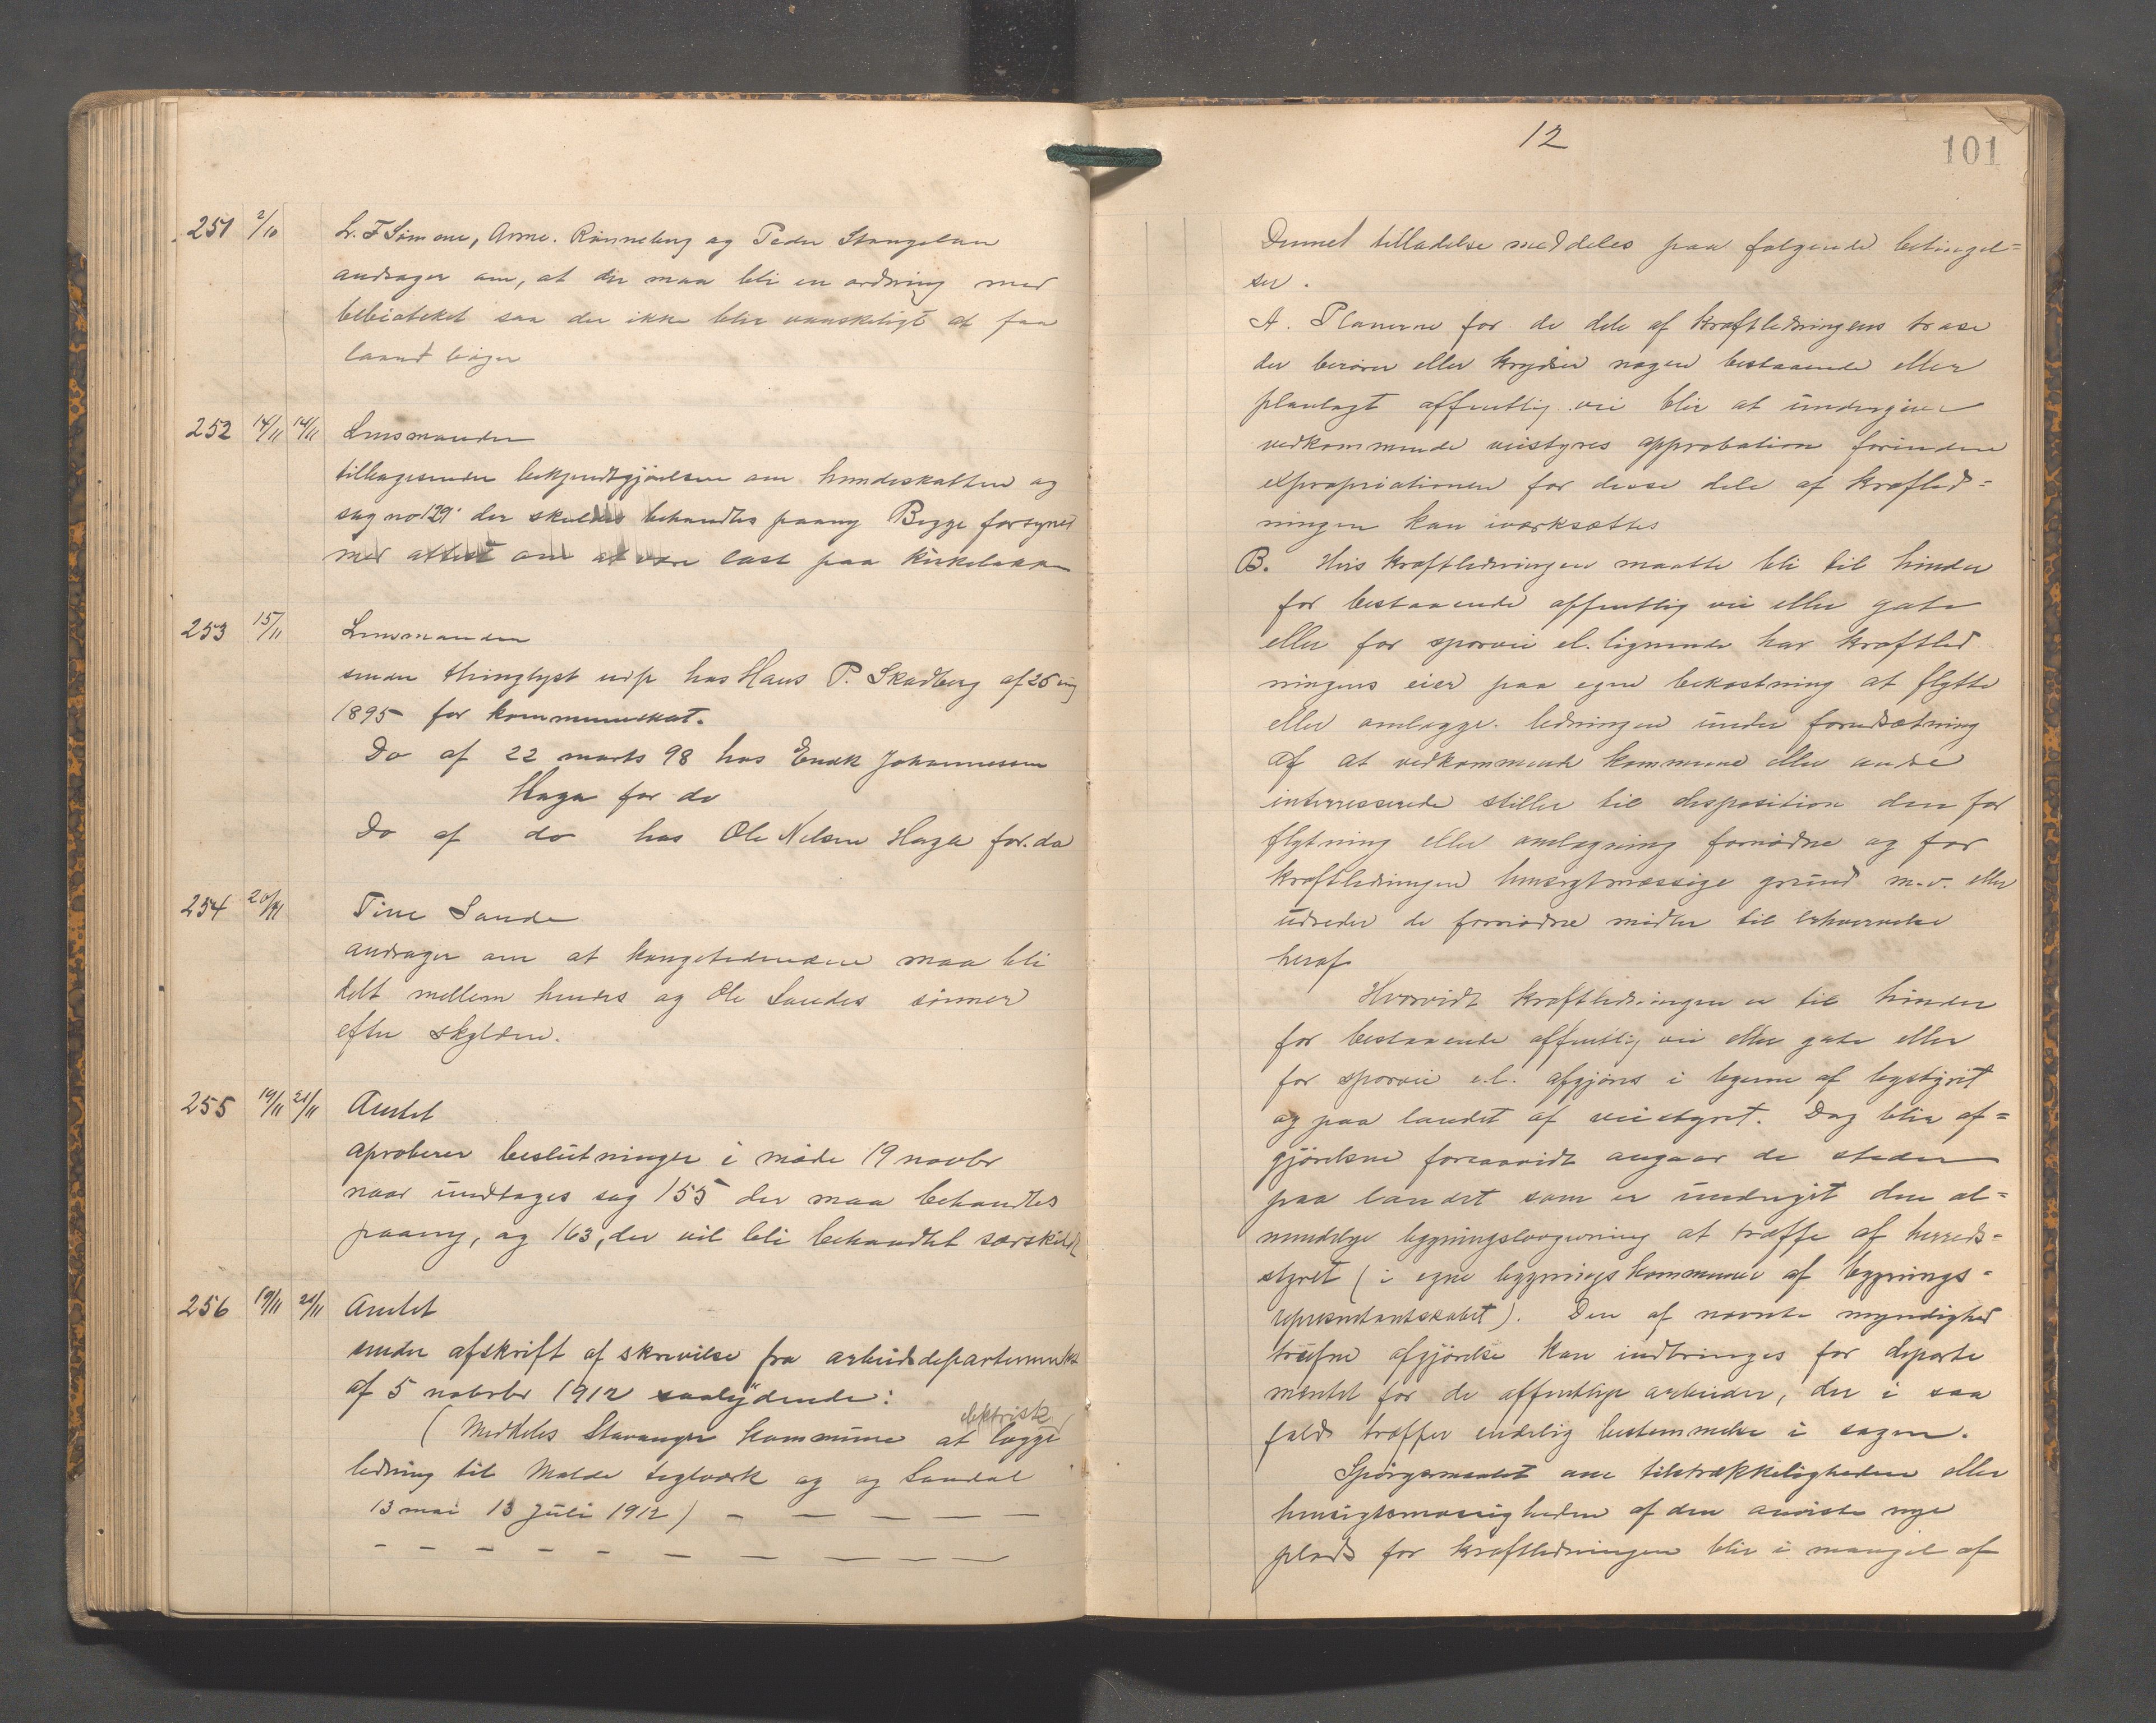 251 2/10 L. F Sømme, Arne. Rønneberg og Peder Stangeland
andrager om, at der maa bli en ordning med
bibioteket saa der ikke blir vanskeligt at faa
laant bøger
252 14/11 14/11 Lensmanden
tilbagesender bekjendtgjørelsen om hundeskatten og
sag no 129 der skuldes behandles paany Begge forsynet
med attest om at være læst paa kirkebakken
253 15/11 Lensmanden
sender thinglyst udp hos Hans P. Skadberg af 26
1895 for kommuneskat.
Do af 22 marts 98 hos Enok Johannessen
Haga for do
Do af do hos Ole Nilsen Haga for. do
254 20/11 Tine Sande
andrager om at kongetiendene maa bli
delt mellem hendes og Ole Sandes sønner
efter skylden.
255 19/11 21/11 Amtet
aproberer beslutninger i møde 19 novbr
naar undtages sag 155 der maa behandles
paany, og 163, der vil bli behandlet særskildt
256 19/11 21/11 Amtet
sender afskrift af skrivelse fra arbeidsdepartementet
af 5 nobvbr 1912 saalydende:
elektrisk
( Meddeles Stavanger kommune at lægge
ledning til Malde teglværk og og Sandal
13 mai 13 Juli 1912 ) — — — — —
— — — — — — — — — —
12
101
Dennet tilladelse meddeles paa følgende betingel=
ser.
A. Planerne for de dele af kraftledningens trase
der berører eller krydser nogen bestaaende eller
planlagt offentlig vei blir at undergive
vedkommende veistyres approbation forinden
expropriationen for disse dele af kraftled=
ningen kan iværksættes
B. Hvis kraftledningen maatte bli til hinder
for bestaaende offentlig vei eller gate
eller for sporvei el. lignende har kraftled
ningens eier paa egen bekostning at flytte
eller omlægge. ledningen under forudsætning
af at vedkommende kommune eller andre
interresserede stiller til disposition den for
flytning eller omlægning fornødne og for
kraftledningen hensigtmæssige grund m.v. eller
udreder de fornødne midler til erhvervelse
heraf
Hvorvidt kraftledningen er til hinder
for bestaaende offentlig vei eller gate eller
for sporvei e.l. afgjøres i byerne af bystyret
og paa landet af veistyret. Dog blir af=
gjørelsen forsaavidt angaar de steder
paa landet som er undergit den al=
mindelige bygningslovgivning at træffe af herreds=
styret (i egne bygningskommuner af bygnings=
representantskabet). Den af nævnte myndighed
trufne afgjørelse kan indbringes for departe
mentet for de offentlige arbeider, der i saa
fald træffer endelig bestemmelse i sagen.
Spørgsmaalet om tilstrækkeligheden eller
hensigtsmæssigheden af den anviste nye
plads for kraftledningen blir i mangel af